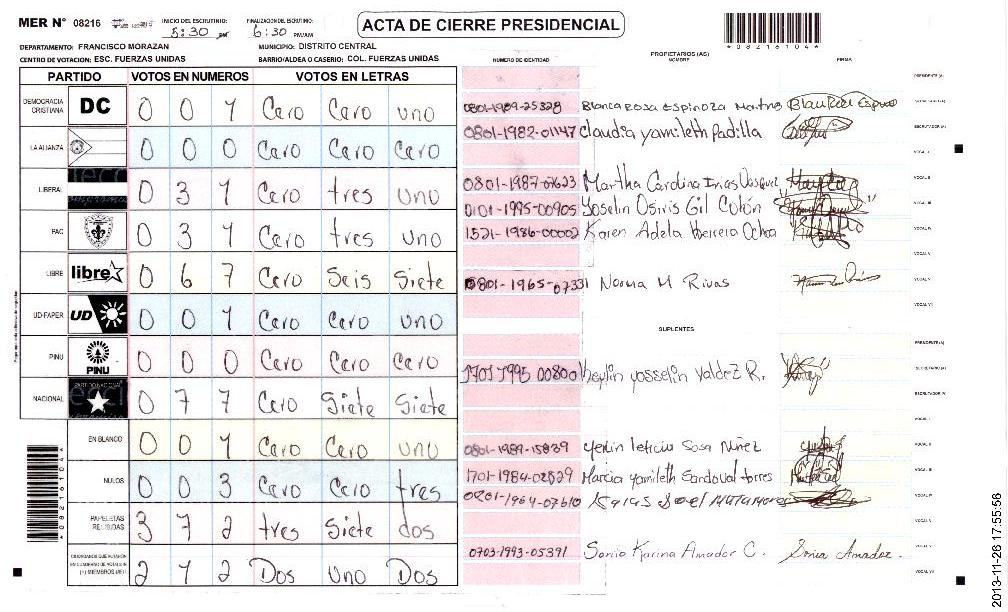 MER N° 08216
INICIO DEL ESCRUTINIO: 5:30 PM
FINALIZACION DEL ESCRUTINIO: 6:30 PM/AM
ACTA DE CIERRE PRESIDENCIAL
*08216104*
DEPARTAMENTO: FRANCISCO MORAZAN
MUNICIPIO: DISTRITO CENTRAL
CENTRO DE VOTACION: ESC. FUERZAS UNIDAS
BARRIO/ALDEA O CASERIO: COL. FUERZAS UNIDAS
NUMERO DE IDENTIDAD
PROPIETARIOS (AS)
NOMBRE
FIRMA
PARTIDO VOTOS EN NUMEROS VOTOS EN LETRAS
DEMOCRACIA CRISTIANA DC 0 0 1 Cero Cero uno
LA ALIANZA 0 0 0 Cero Cero Cero
LIBERAL 0 3 1 Cero tres uno
PAC 0 3 1 Cero tres uno
LIBRE libre 0 6 7 Cero Seis Siete
UD-FAPER UD 0 0 1 Cero Cero uno
PINU PINU 0 0 0 Cero Cero Cero
NACIONAL 0 7 7 Cero Siete Siete
EN BLANCO 0 0 1 Cero Cero uno
NULOS 0 0 3 Cero Cero tres
PAPELETAS RECIBIDAS 3 7 2 tres Siete dos
CIUDADANOS QUE VOTARON EN CUADERNO DE VOTACION (+) MIEMBROS MER 2 1 2 Dos uno Dos
PRESIDENTE (A)
0801-1989-25328 Blanca Rosa Espinoza SECRETARIO (A)
0801-1982-01147 Claudia yamileth Padilla ESCRUTADOR (A)
VOCAL I
0801-1987-07623 Martha Carolina VOCAL II
0101-1995-00905 Yoselin Osiris Gil Colón VOCAL III
1521-1986-00002 Karen Adela Herrera Ochoa VOCAL IV
0801-1965-07331 Norma M Rivas VOCAL V
VOCAL VI
SUPLENTES
PRESIDENTE (A)
1701 1995 00800 Keylin yosselin Valdez R. SECRETARIO (A)
ESCRUTADOR (A)
VOCAL I
0801-1989-15839 yenin leticia Sosa Núñez VOCAL II
1701-1984-02529 Marcia yamileth Sandoval torres VOCAL III
0801-1964-07610 Joel Matamoros VOCAL IV
VOCAL V
0703-1993-05391 Sonia Karina Amador C. Sonia Amador. VOCAL VI
VOCAL VII
*08216104*
2013-11-26 17:55:56